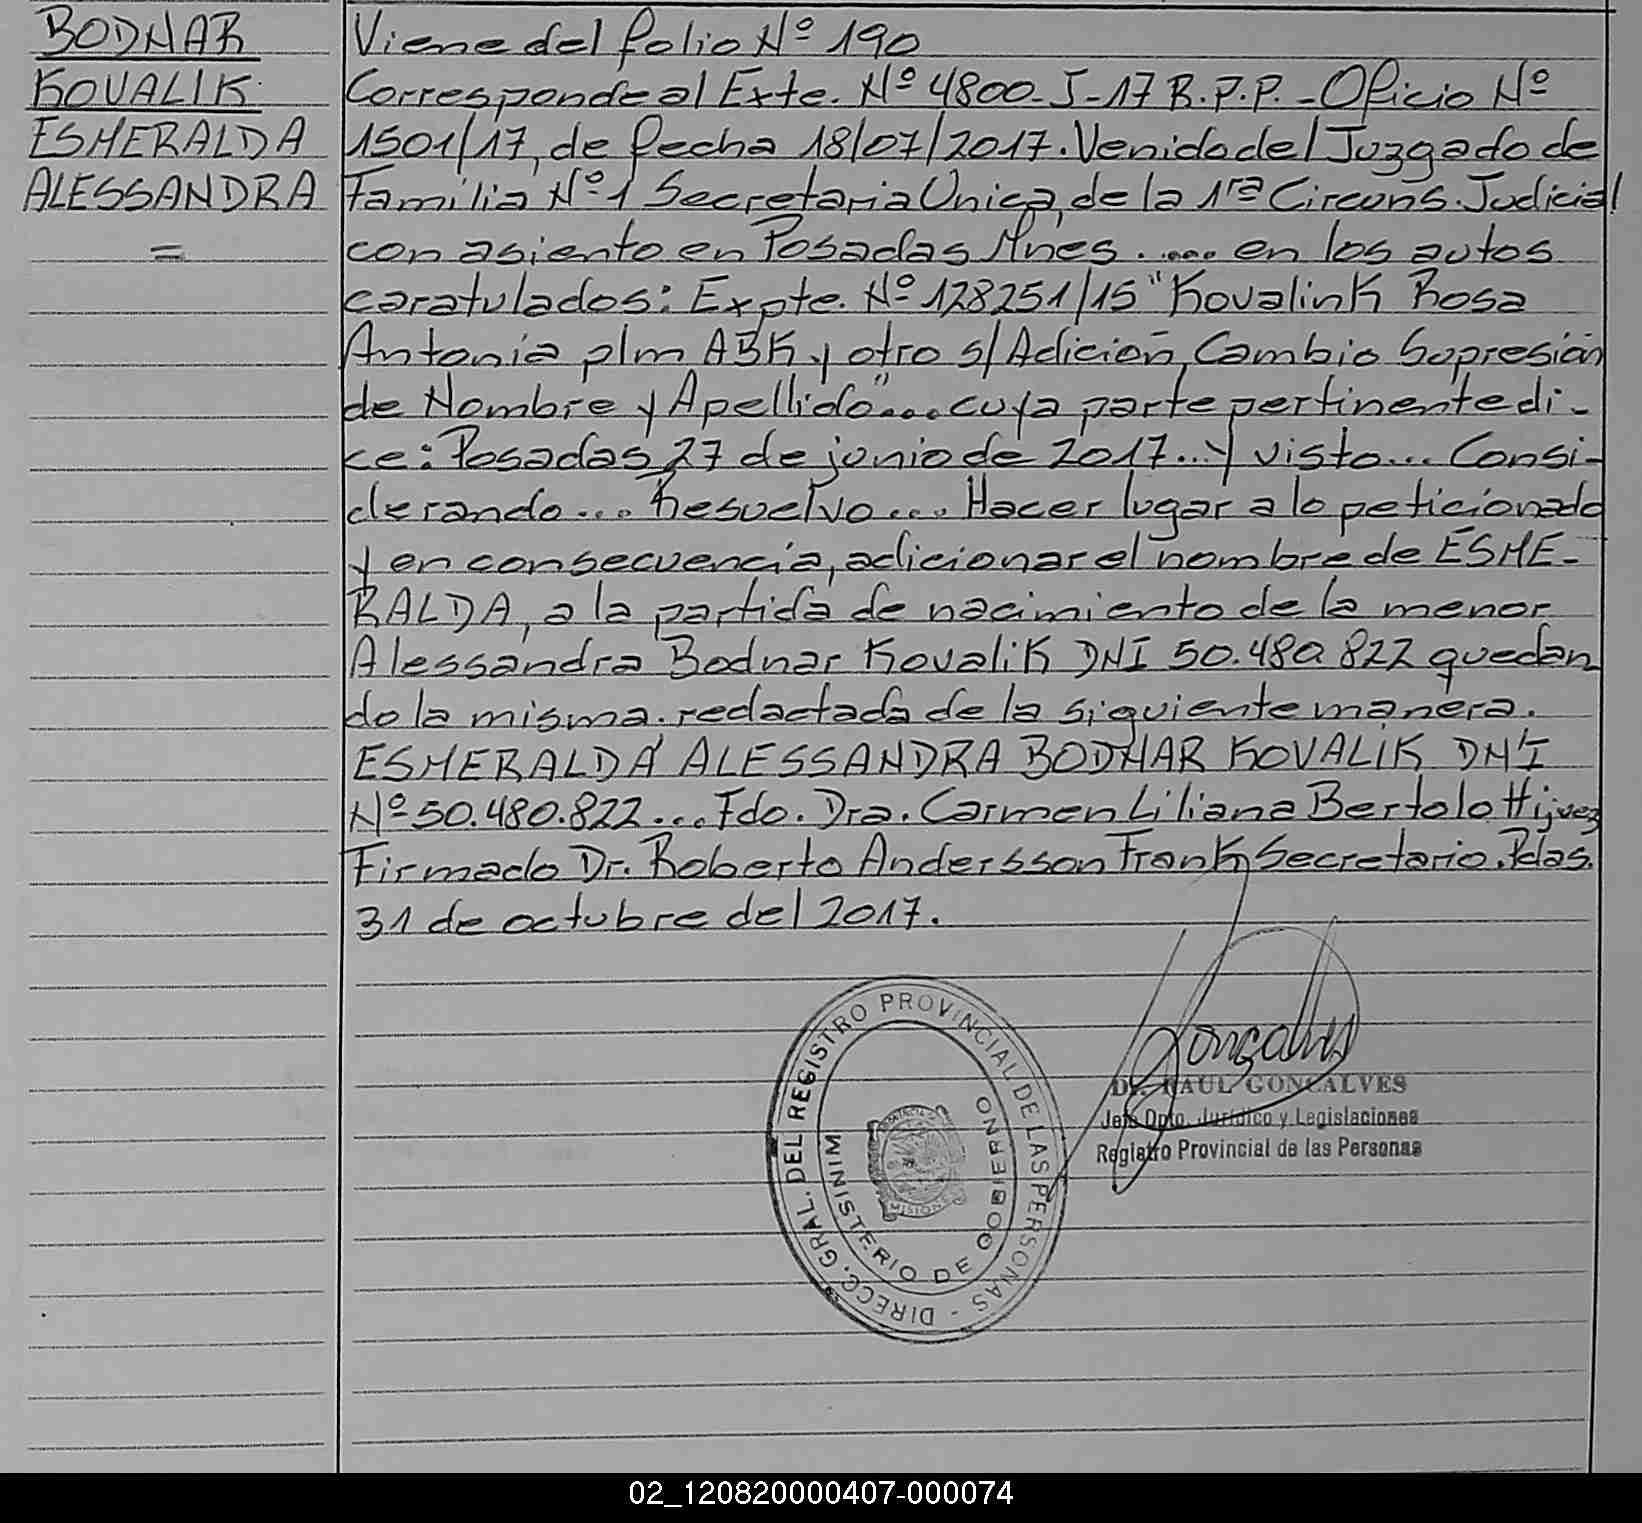 BODNAR
KOVALIK
ESMERALDA
ALESSANDRA
=
Viene del folio Nº 190
Corresponde al Exte. Nº 4800-J-17 R.P.P. - Oficio Nº
1501/17, de fecha 18/07/2017. Venido del Juzgado de
Familia Nº 1 Secretaria Unica, de la 1ra Circuns. Judicial
con asiento en Posadas Mnes ..... en los autos
caratulados: Expte. Nº 128251/15 "Kovalink Rosa
Antonia p/m ABK y otro s/ Adición, Cambio Supresión
de Nombre y Apellido".... cuya parte pertinente di-
ce: Posadas, 27 de junio de 2017... y visto... Consi-
derando... Resuelvo.... Hacer lugar a lo peticionado
y en consecuencia, adicionar el nombre de ESME-
RALDA, a la partida de nacimiento de la menor
Alessandra Bodnar Kovalik DNI 50.480.822 quedan
do la misma. redactada de la siguiente manera.
ESMERALDA ALESSANDRA BODNAR KOVALIK DNI
Nº 50.480.822.... Fdo. Dra. Carmen Liliana Bertolotti juez
Firmado Dr. Roberto Andersson Frank, Secretario. Pdas.
31 de octubre del 2017.
DIRECC. GRAL. DEL REGISTRO PROVINCIAL DE LAS PERSONAS -
MINISTERIO DE GOBIERNO
Gonçalves
Dr. RAUL GONCALVES
Jefe Dpto. Jurídico y Legislaciones
Registro Provincial de las Personas
02_120820000407-000074